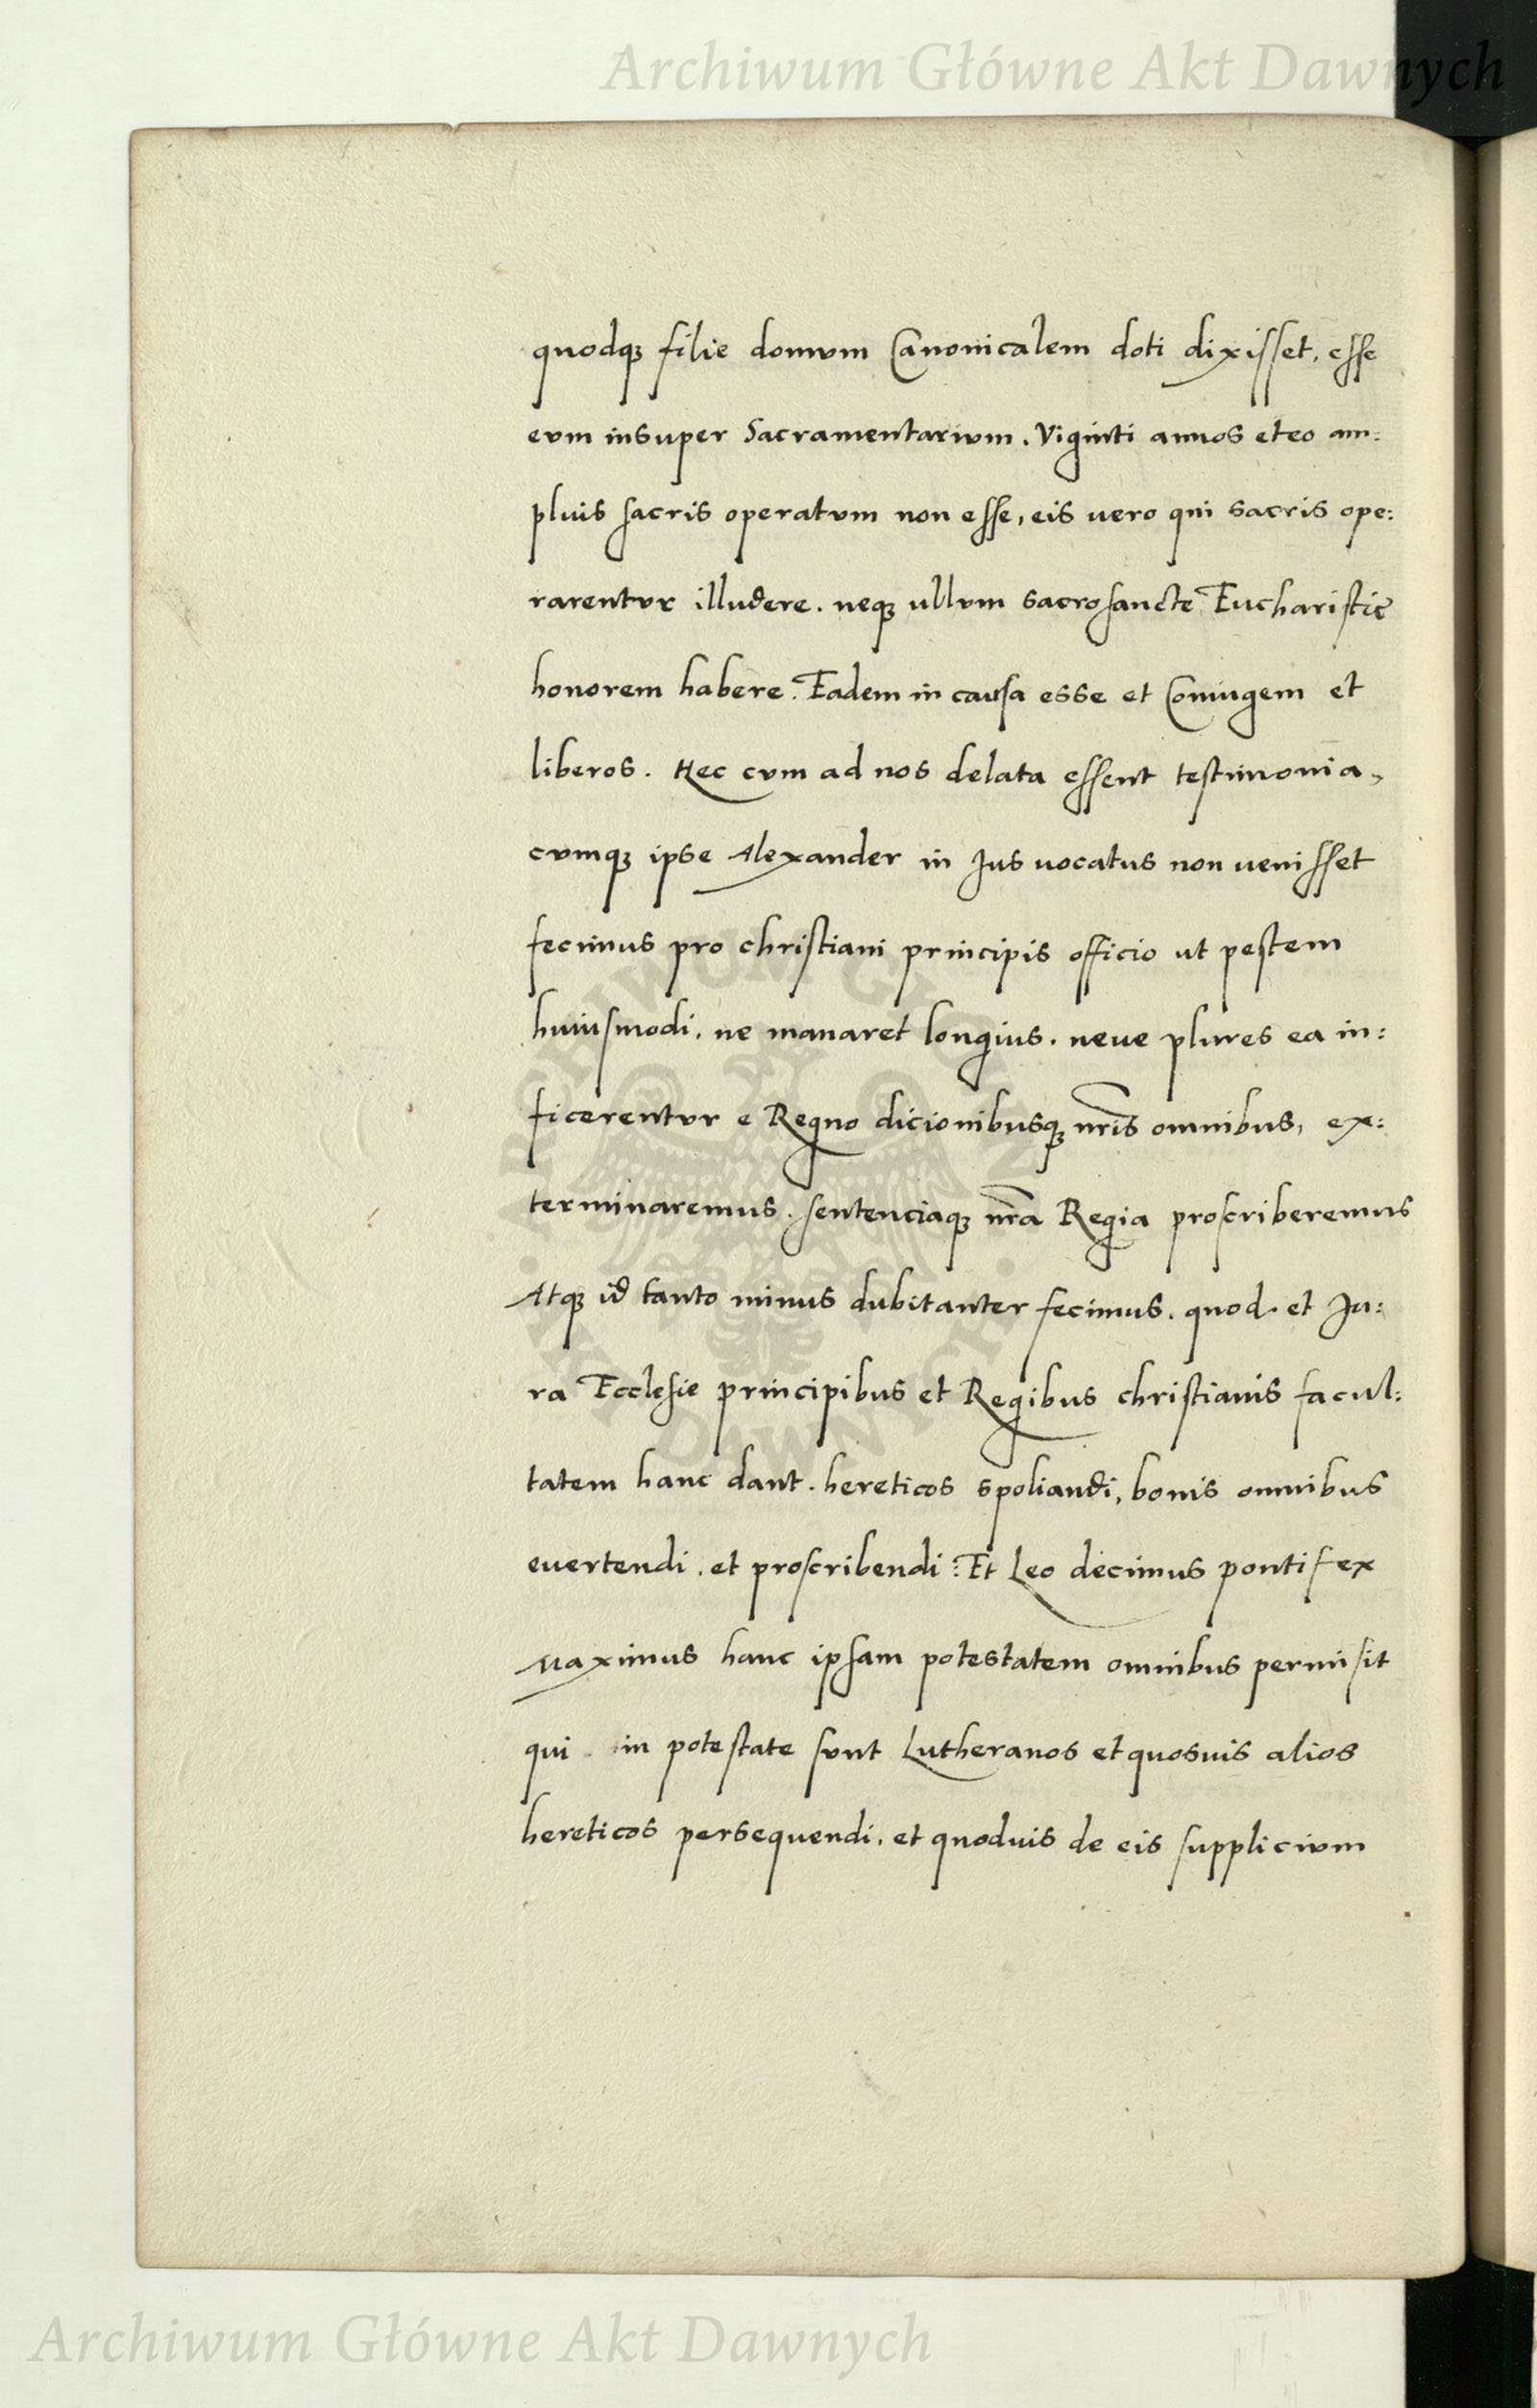 Archiwum Główne Akt Dawnych
quodq filie domum Canonicalem doti dixisset, esse
eum insuper Sacramentarium. Viginti annos et eo am:
plius sacris operatum non esse, eis uero qui sacris ope:
rarentur illudere. neq ullum sacrosancte Eucharistie
honorem habere. Eadem in causa esse et Coniugem et
liberos. Hec cum ad nos delata essent testimonia,
cumq ipse Alexander in Jus uocatus non uenisset
fecimus pro christiani principis officio ut pestem
huiusmodi. ne manaret longius. neue plures ea in:
ficerentur e Regno dicionibusq nris omnibus, ex:
terminaremus. sentenciaq nra Regia proscriberemus
Atq id tanto minus dubitanter fecimus. quod et Ju:
ra Ecclesie principibus et Regibus christianis facul:
tatem hanc dant. hereticos spoliandi, bonis omnibus
euertendi. et proscribendi: Et Leo decimus pontifex
Maximus hanc ipsam potestatem omnibus permisit
qui in potestate sunt Lutheranos et quosuis alios
hereticos persequendi. et quoduis de eis supplicium
Archiwum Główne Akt Dawnych